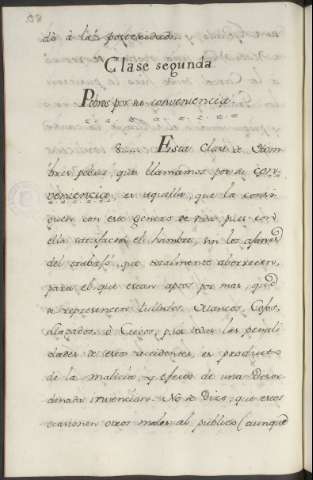 da á las posteridad.
Clase segunda
Pobres por su conveniencia.
Esta Clase de Hom
bres pobres, que llamamos por su con-
veniencia, es aquella, que la consi
guen con este genero de vida, pues con
ella satisfacen el hambre, sin los afanes
del trabajo, que totalmente aborrecen,
para el que estan aptos por mas, que
se representen tullidos, Mancos, Cojos,
Llagados, ó Ciegos, p.r todas las penali
dades de estos accidentes, es producto
de la malicia, y efecto de una desor
denada inclinacion. No se dice, que estos
ocasionen otros males al publico (aunque